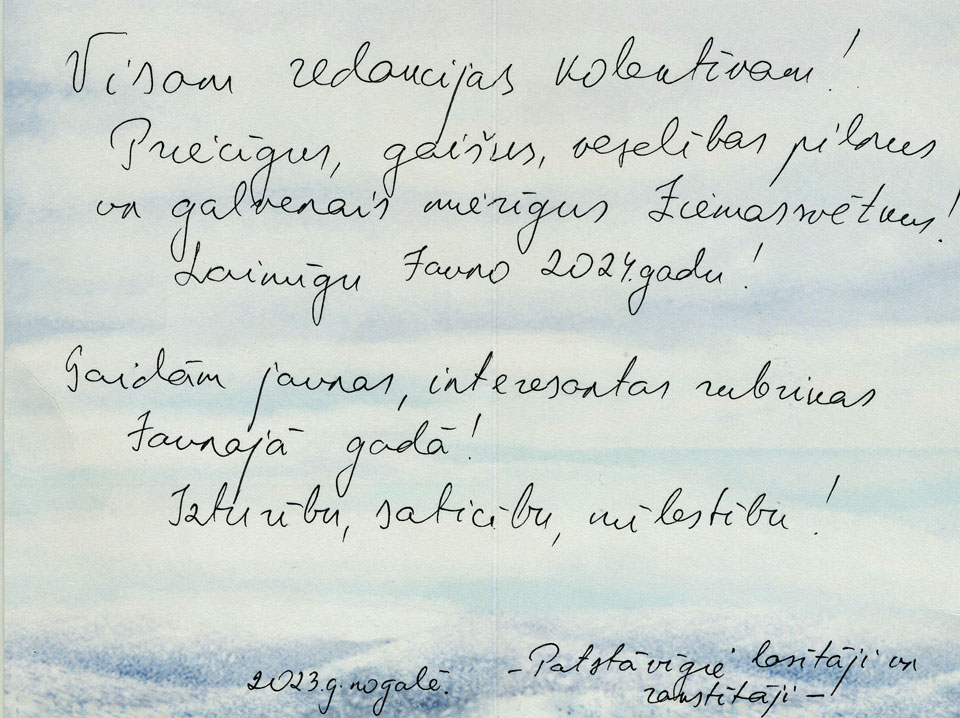 Visam redakcijas kolektīvam!
Priecīgus, gaišus, veselības pilnus
un galvenais mierīgus Ziemassvētkus!
Laimīgu Jauno 2024.gadu!
Gaidām jaunas, interesantas rubrikas
Jaunajā gadā!
Izturību, saticību, mīlestību!
2023.g. nogalē.
-Patstāvīgie lasītāji un
rakstītāji-